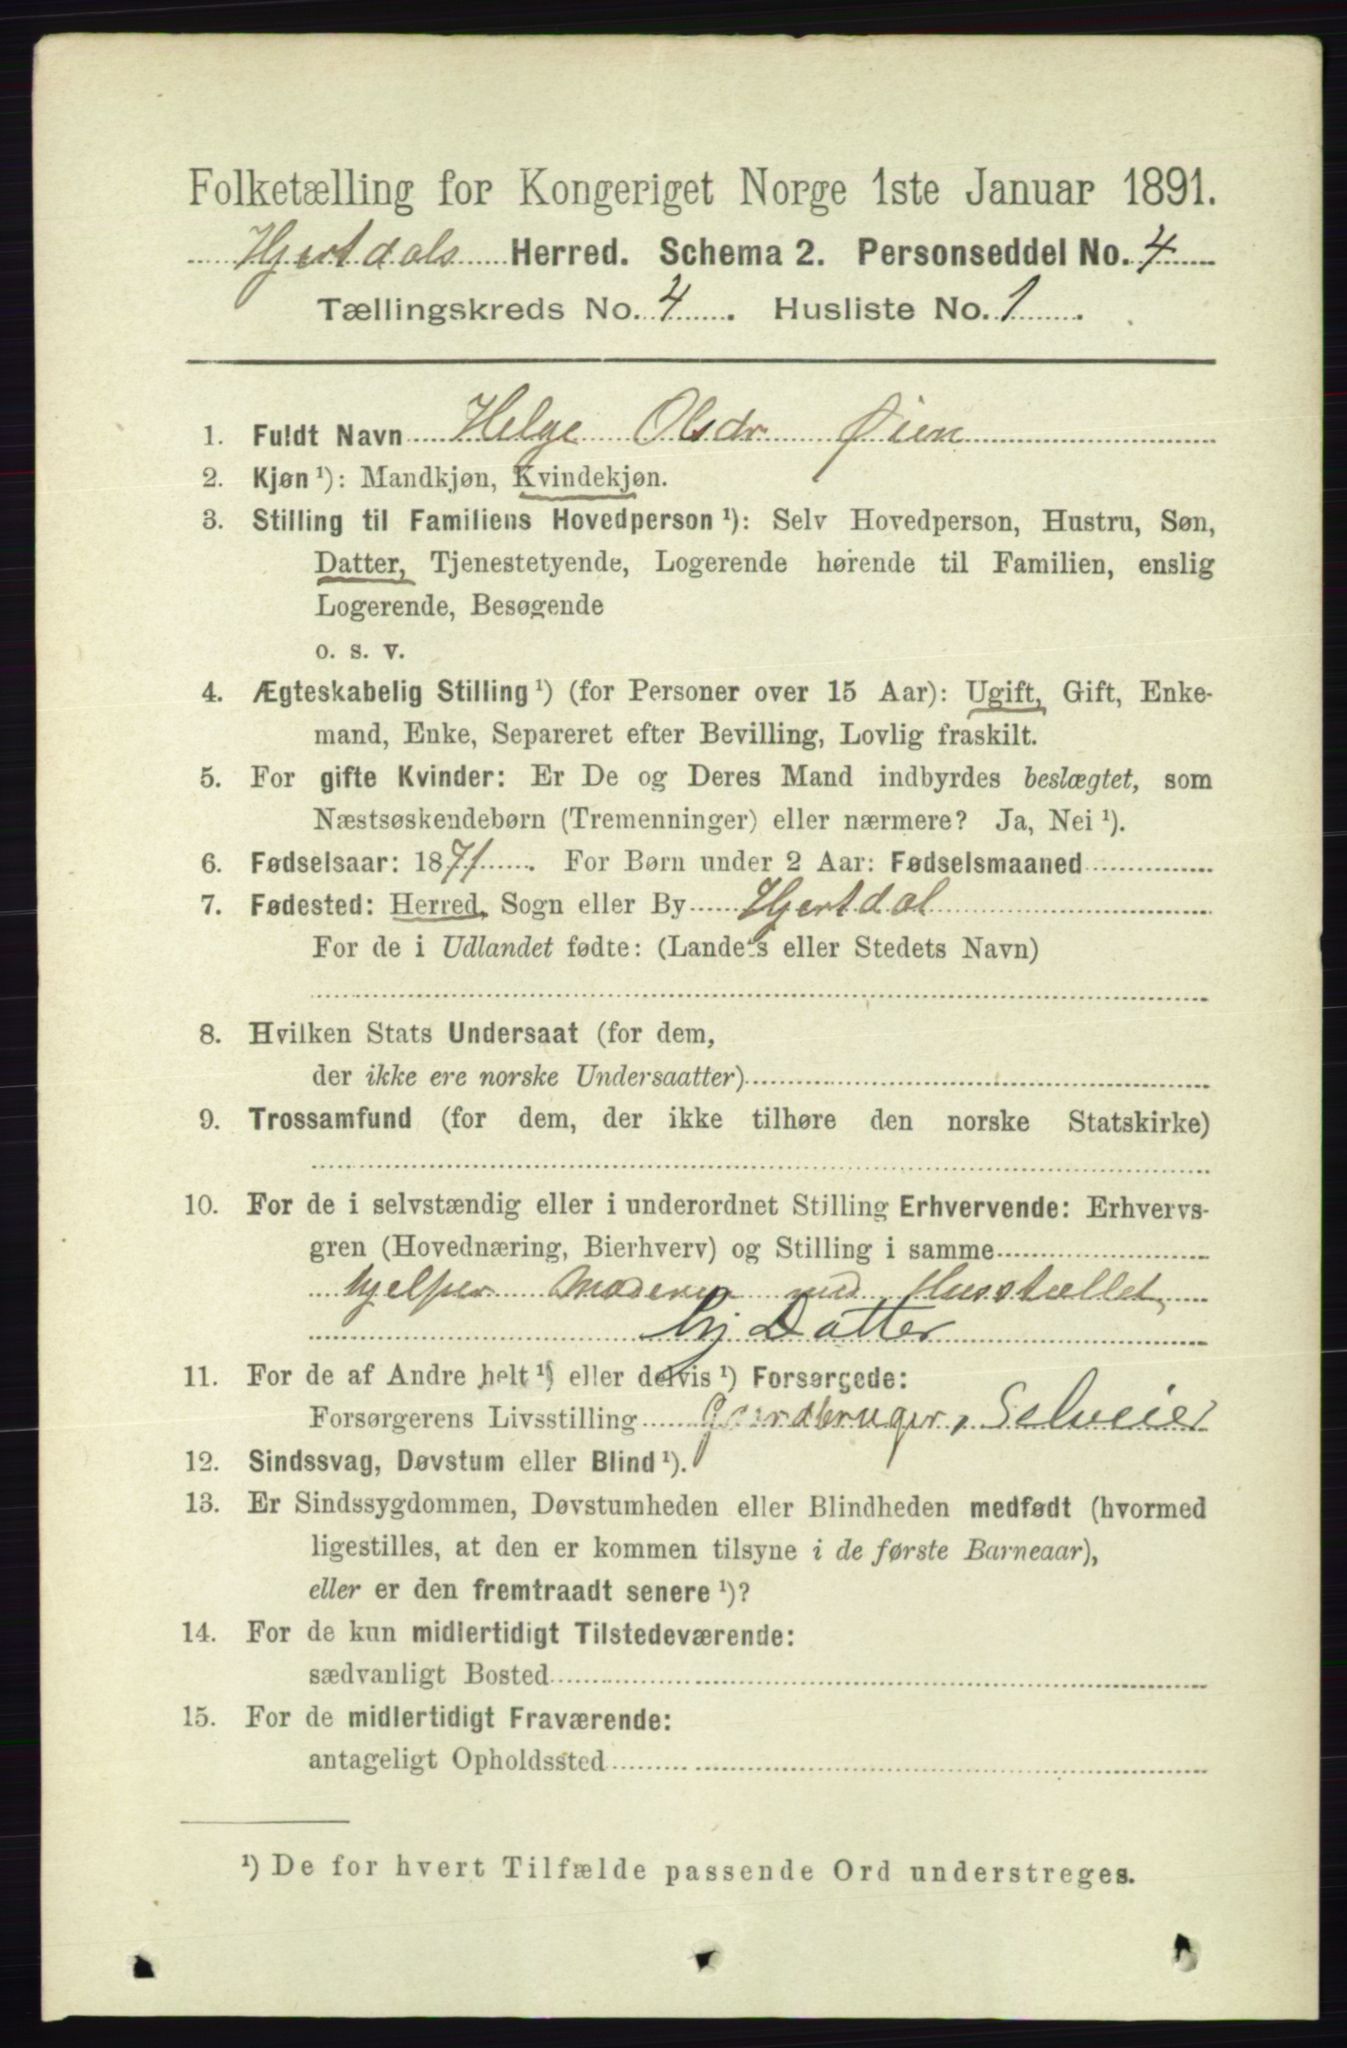 Folketælling for Kongeriget Norge 1ste Januar 1891.
Hjertdals Herred. Schema 2. Personseddel No. 4
Tællingskreds No. 4. Husliste No. 1.
1. Fuldt Navn Helge Olsdr Øien
2. Kjøn ¹): Mandkjøn, Kvindekjøn.
3. Stilling til Familiens Hovedperson ¹): Selv Hovedperson, Hustru, Søn,
Datter, Tjenestetyende, Logerende hørende til Familien, enslig
Logerende, Besøgende
o. s. v.
4. Ægteskabelig Stilling ¹) (for Personer over 15 Aar): Ugift, Gift, Enke-
mand, Enke, Separeret efter Bevilling, Lovlig fraskilt.
5. For gifte Kvinder: Er De og Deres Mand indbyrdes beslægtet, som
Næstsøskendebørn (Tremenninger) eller nærmere? Ja, Nei ¹).
6. Fødselsaar: 1871. For Børn under 2 Aar: Fødselsmaaned
7. Fødested: Herred, Sogn eller By Hjertdal
For de i Udlandet fødte: (Landets eller Stedets Navn)
8. Hvilken Stats Undersaat (for dem,
der ikke ere norske Undersaatter)
9. Trossamfund (for dem, der ikke tilhøre den norske Statskirke)
10. For de i selvstændig eller i underordnet Stilling Erhvervende: Erhvervs-
gren (Hovednæring, Bierhverv) og Stilling i samme
hjelper Moderen med Husstellet,
hj Datter
11. For de af Andre helt ¹) eller delvis ¹) Forsørgede:
Forsørgerens Livsstilling Gaardbruger, Selveier
12. Sindssvag, Døvstum eller Blind ¹).
13. Er Sindssygdommen, Døvstumheden eller Blindheden medfødt (hvormed
ligestilles, at den er kommen tilsyne i de første Barneaar),
eller er den fremtraadt senere ¹)?
14. For de kun midlertidigt Tilstedeværende:
sædvanligt Bosted
15. For de midlertidigt Fraværende:
antageligt Opholdssted
¹) De for hvert Tilfælde passende Ord understreges.